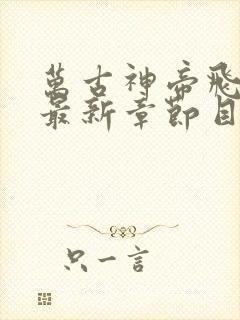 萬古神帝飛
最新章節目
只一言